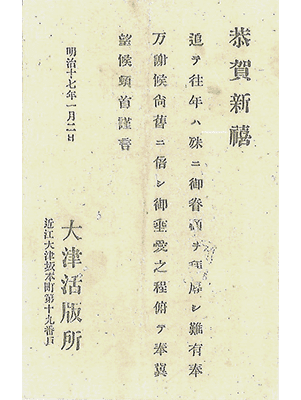 恭賀新禧
追テ往年ハ殊ニ御眷顧ヲ辱シ難有奉
万謝候尚舊ニ倍シ御垂愛之程俯テ奉冀
望候頓首謹言
明治十七年一月二日
大津活版所
近江大津坂本町第十九番戸